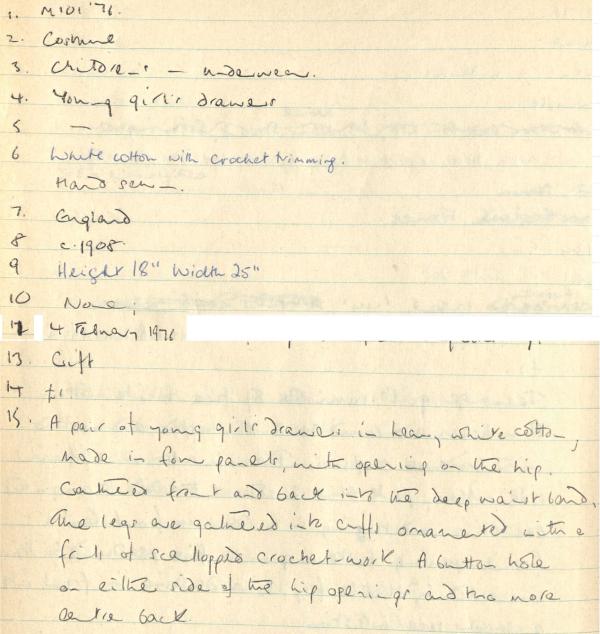 1. M101 '76.
2. Costume
3. Children's — underwear.
4. Young girl's drawers
5 —
6 White cotton with Crochet trimming.
Hand sewn.
7. England
8 c.1908.
9 Height 18" Width 25"
10 None,
12 4 February 1976
13. Gift
14 £1
15. A pair of young girl's drawers in heavy white cotton,
made in four panels, with opening on the hip.
Gathered front and back into the deep waist band.
The legs are gathered into cuffs ornamented with a
frill of scallopped crochet-work. A button hole
on either side of the hip openings and two more
centre back.